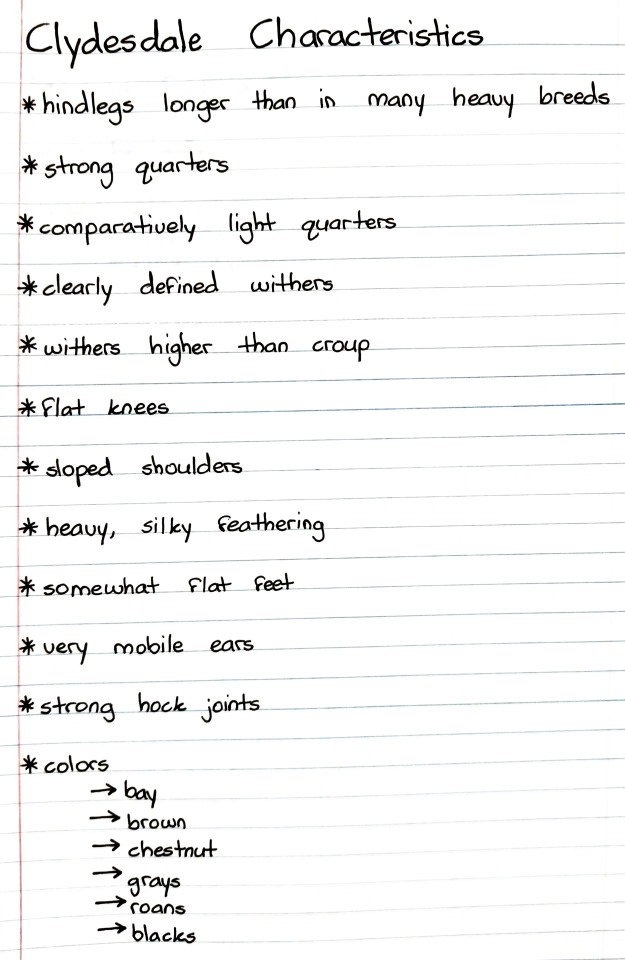 Clydesdale Characteristics
* hindlegs longer than in many heavy breeds
* strong quarters
* comparatively light quarters
* clearly defined withers
* withers higher than croup
* flat knees
* sloped shoulders
* heavy, silky feathering
* somewhat flat feet
* very mobile ears
* strong hock joints
* colors
→ bay
→ brown
→ chestnut
→ grays
→ roans
→ blacks